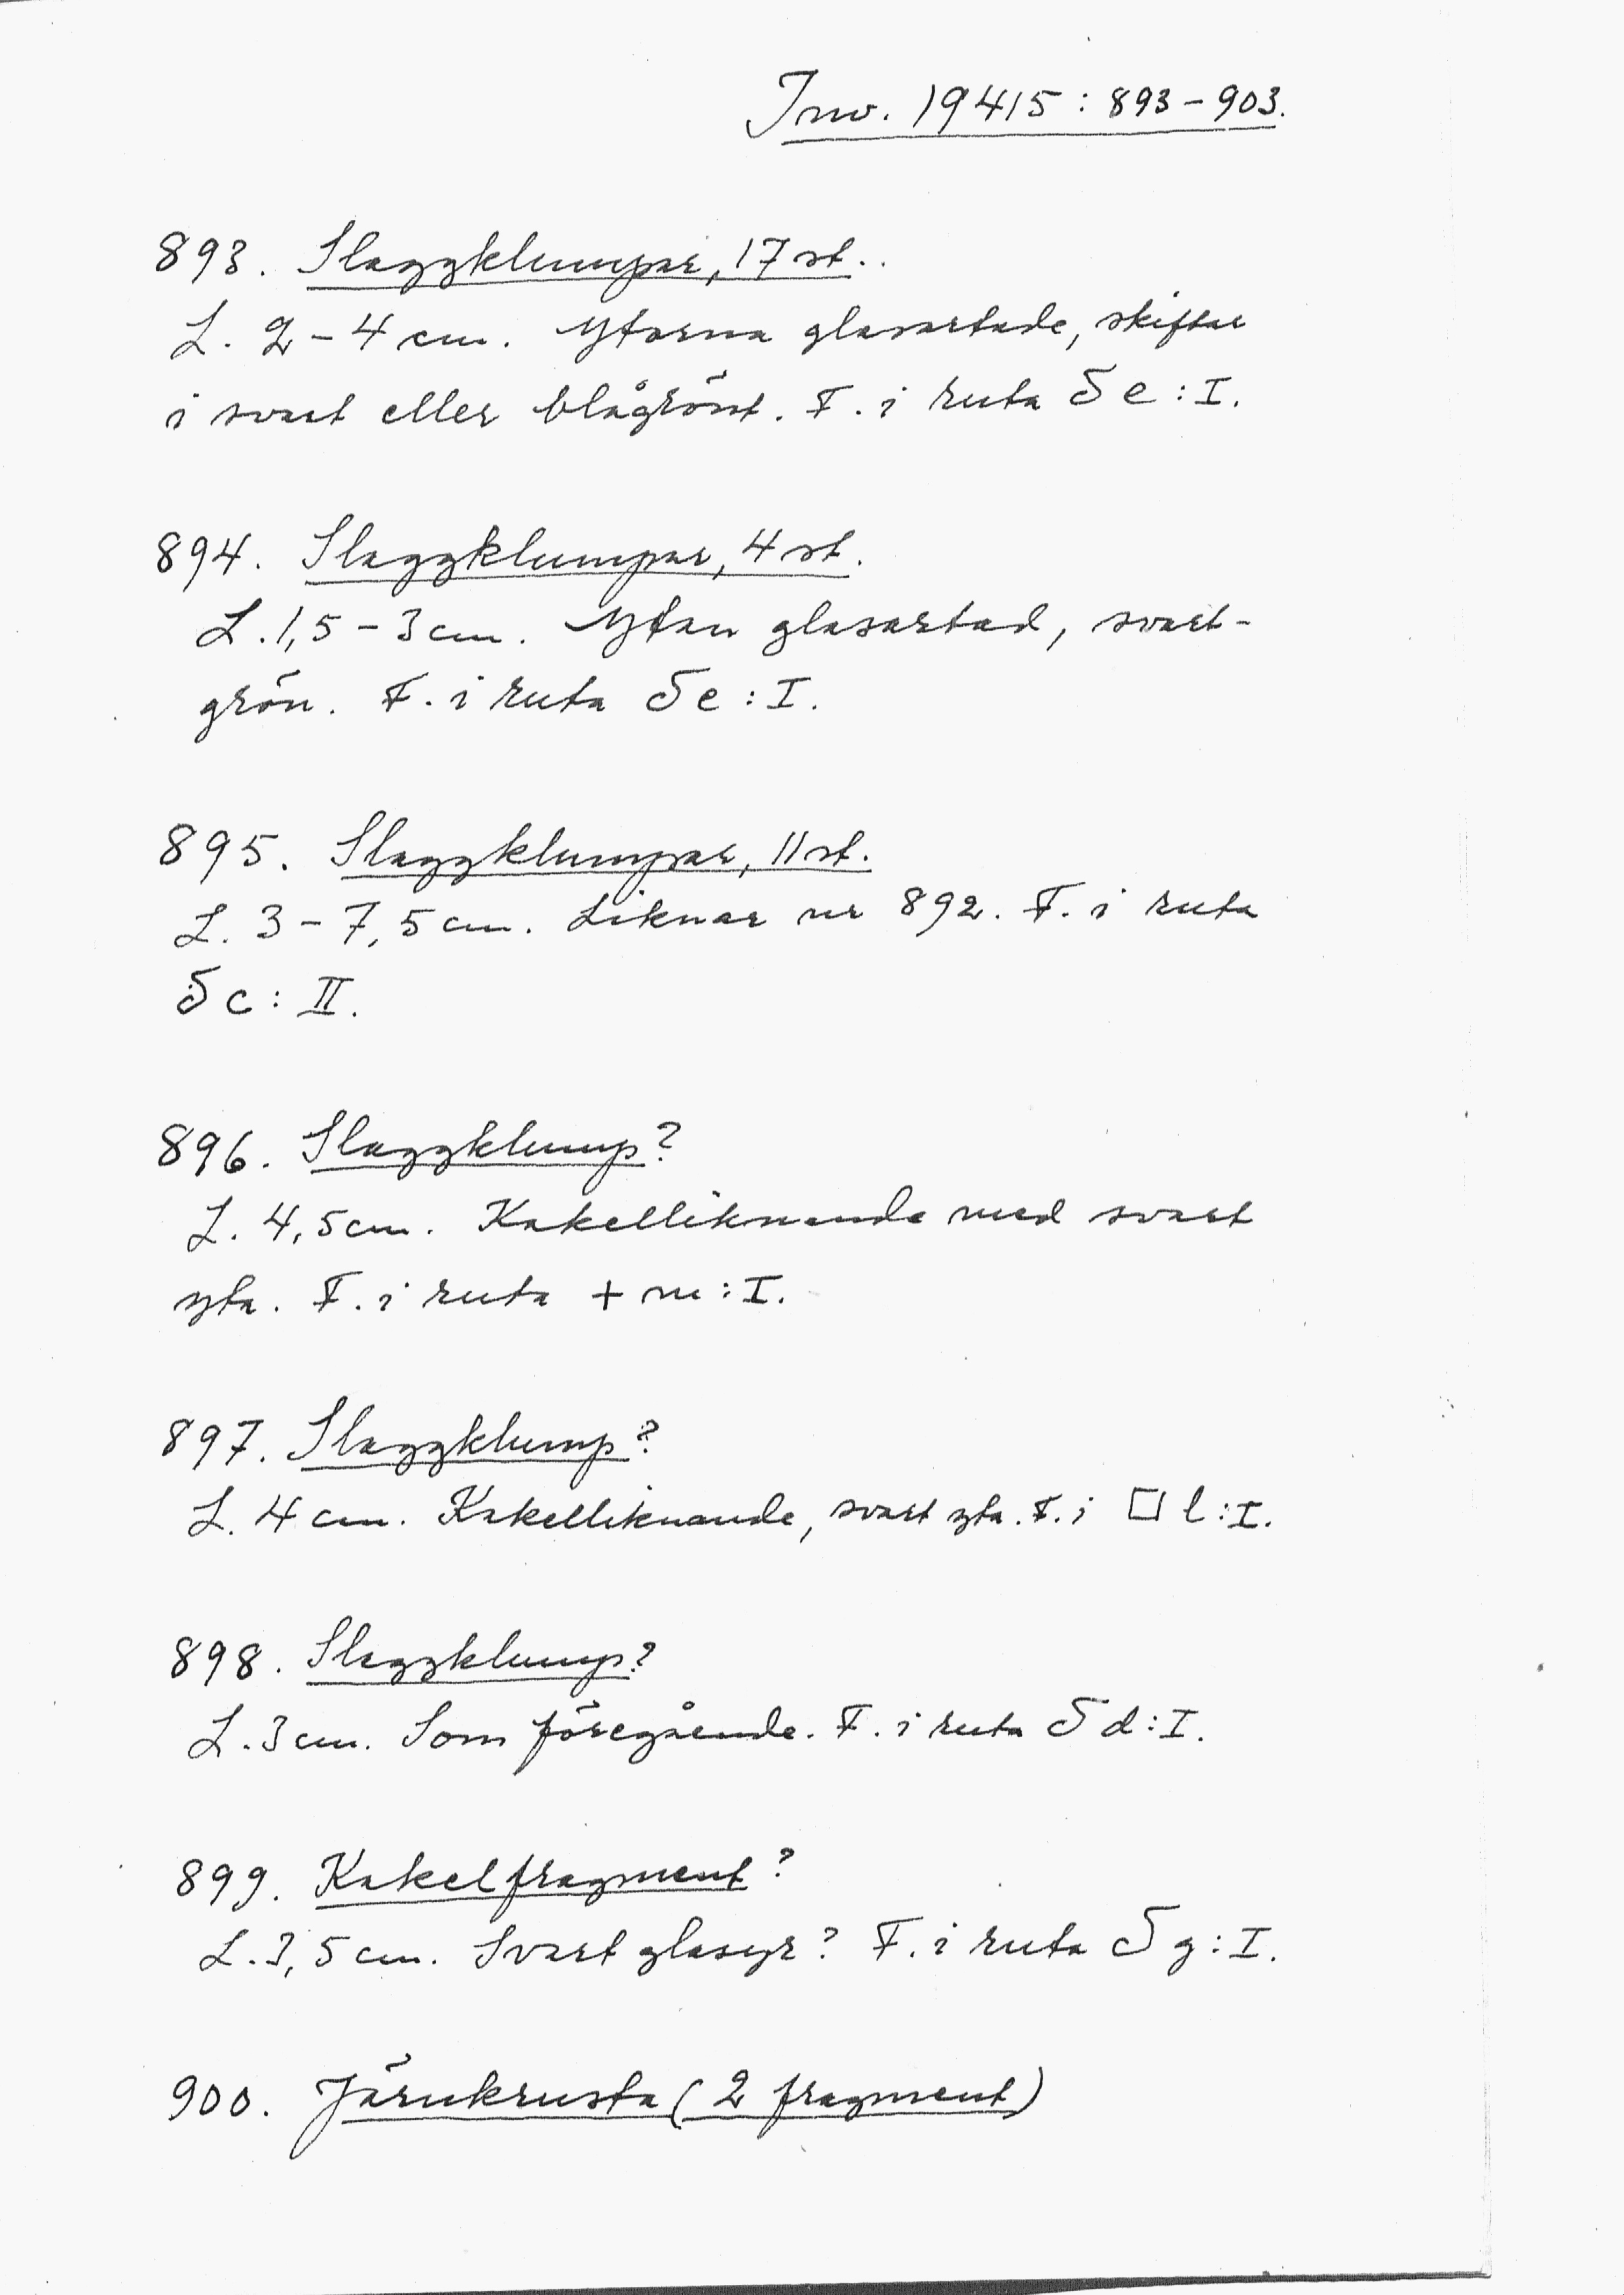 Inv. 19415 : 893 – 903.
893. Slaggklumpar, 17 st..
L. 2 – 4 cm. Ytorna glasartade, skiftar
i svart eller blågrönt. F. i ruta δ e : I.
894. Slaggklumpar, 4 st.
L. 1,5 – 3 cm. Ytan glasartad, svart-
grön. F. i ruta δ e : I.
895. Slaggklumpar, 11 st.
L. 3 – 7,5 cm. Liknar nr 892. F. i ruta
δ c : II.
896. Slaggklump?
L. 4,5 cm. Kakelliknande med svart
yta. F. i ruta + m : I.
897. Slaggklump?
L. 4 cm. Kakelliknande, svart yta. F. i □ l : I.
898. Slaggklump?
L. 3 cm. Som föregående. F. i ruta δ d : I.
899. Kakelfragment?
L. 3,5 cm. Svart glasyr? F. i ruta δ g : I.
900. Järnkrusta (2 fragment)